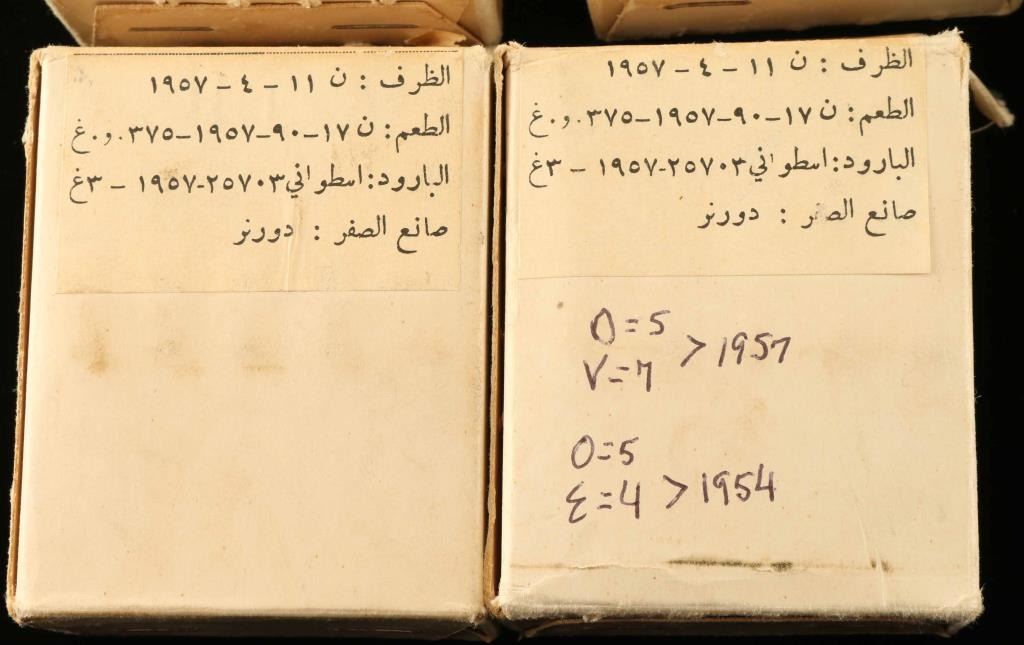 الظرف : ن ١١ - ٤ - ١٩٥٧
الطعم : ن ١٧-٩٠-١٩٥٧-٣٧٥.و.غ
البارود: اسطواني ٢٥٧٠٣-١٩٥٧ - ٣غ
صانع الصفر : دورنر
الظرف : ن ١١ - ٤ - ١٩٥٧
الطعم : ن ١٧-٩٠-١٩٥٧-٣٧٥.و.غ
البارود: اسطواني ٢٥٧٠٣-١٩٥٧ - ٣غ
صانع الصفر : دورنر
٥=5
٧=7 > 1957
٥=5
٤=4 > 1954